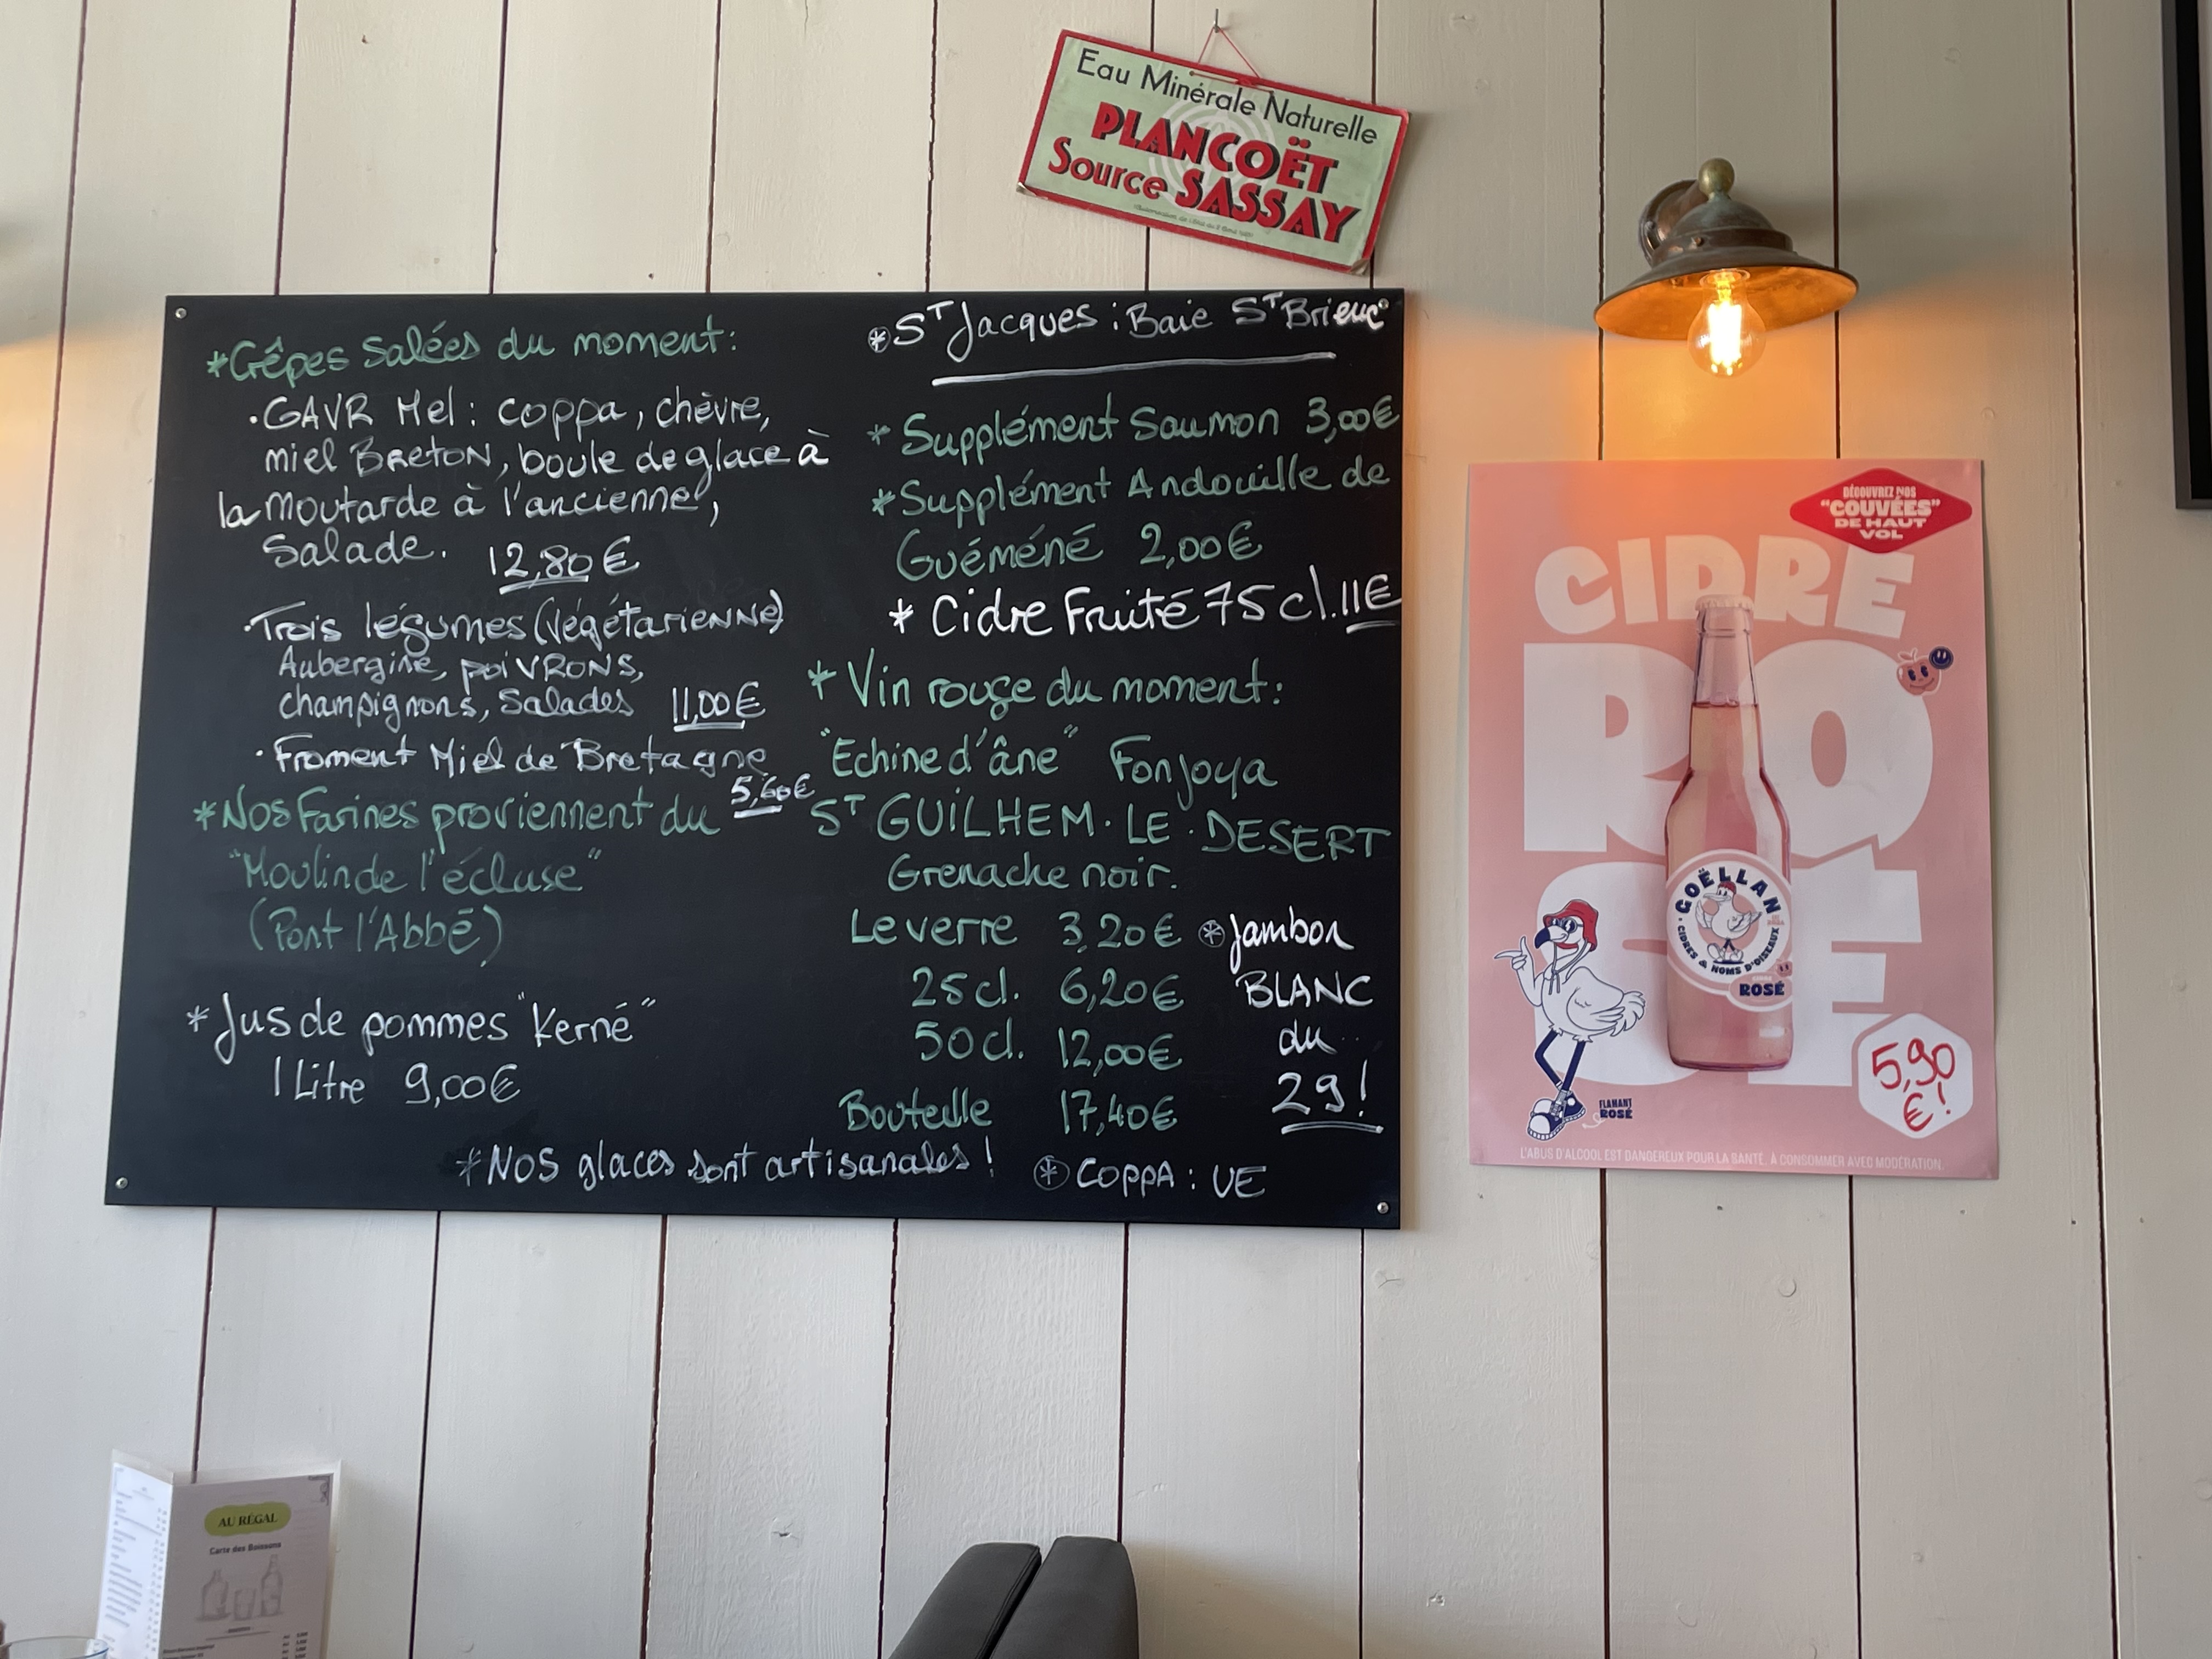 Eau Minérale Naturelle
PLANCOËT
Source SASSAY
*Crêpes Salées du moment:
·GAVR Mel: coppa, chèvre,
miel BRETON, boule de glace à
la moutarde à l'ancienne,
Salade. 12,80€
·Trois légumes (végétarienne)
Aubergine, poivrons,
champignons, Salades 11,00€
·Froment Miel de Bretagne
5,60€
*Nos Farines proviennent du
"Moulin de l'écluse"
(Pont l'Abbé)
*Jus de pommes "Kerné"
1 Litre 9,00€
*Nos glaces sont artisanales!
*ST Jacques: Baie ST Brieuc
*Supplément Saumon 3,00€
*Supplément Andouille de
Guéméné 2,00€
*Cidre Fruité 75cl. 11€
*Vin rouge du moment:
"Echine d'âne" Fonjoya
ST GUILHEM·LE·DESERT
Grenache noir.
Le verre 3,20€
25cl. 6,20€
50cl. 12,00€
Bouteille 17,40€
*Jambon
BLANC
du
29!
*COPPA: UE
DÉCOUVREZ NOS
"COUVÉES"
DE HAUT
VOL
CIDRE
RO
SÉ
GOËLLAN
CIDRES & NOMS D'OISEAUX
ROSÉ
FLAMANT
ROSÉ
5,90
€!
L'ABUS D'ALCOOL EST DANGEREUX POUR LA SANTÉ. À CONSOMMER AVEC MODÉRATION.
AU RÉGAL
Carte des Boissons